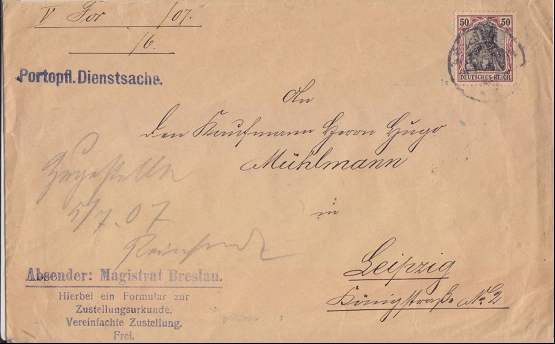 V For /07.
/6.
50 50
DEUTSCHES REICH
Portopfl. Dienstsache.
An
den Kaufmann Herrn Hugo
Mühlmann
in
Leipzig
Königstraße No 2
Zugestellt
5/7.07
Absender: Magistrat Breslau.
Hierbei ein Formular zur
Zustellungsurkunde.
Vereinfachte Zustellung.
Frei.